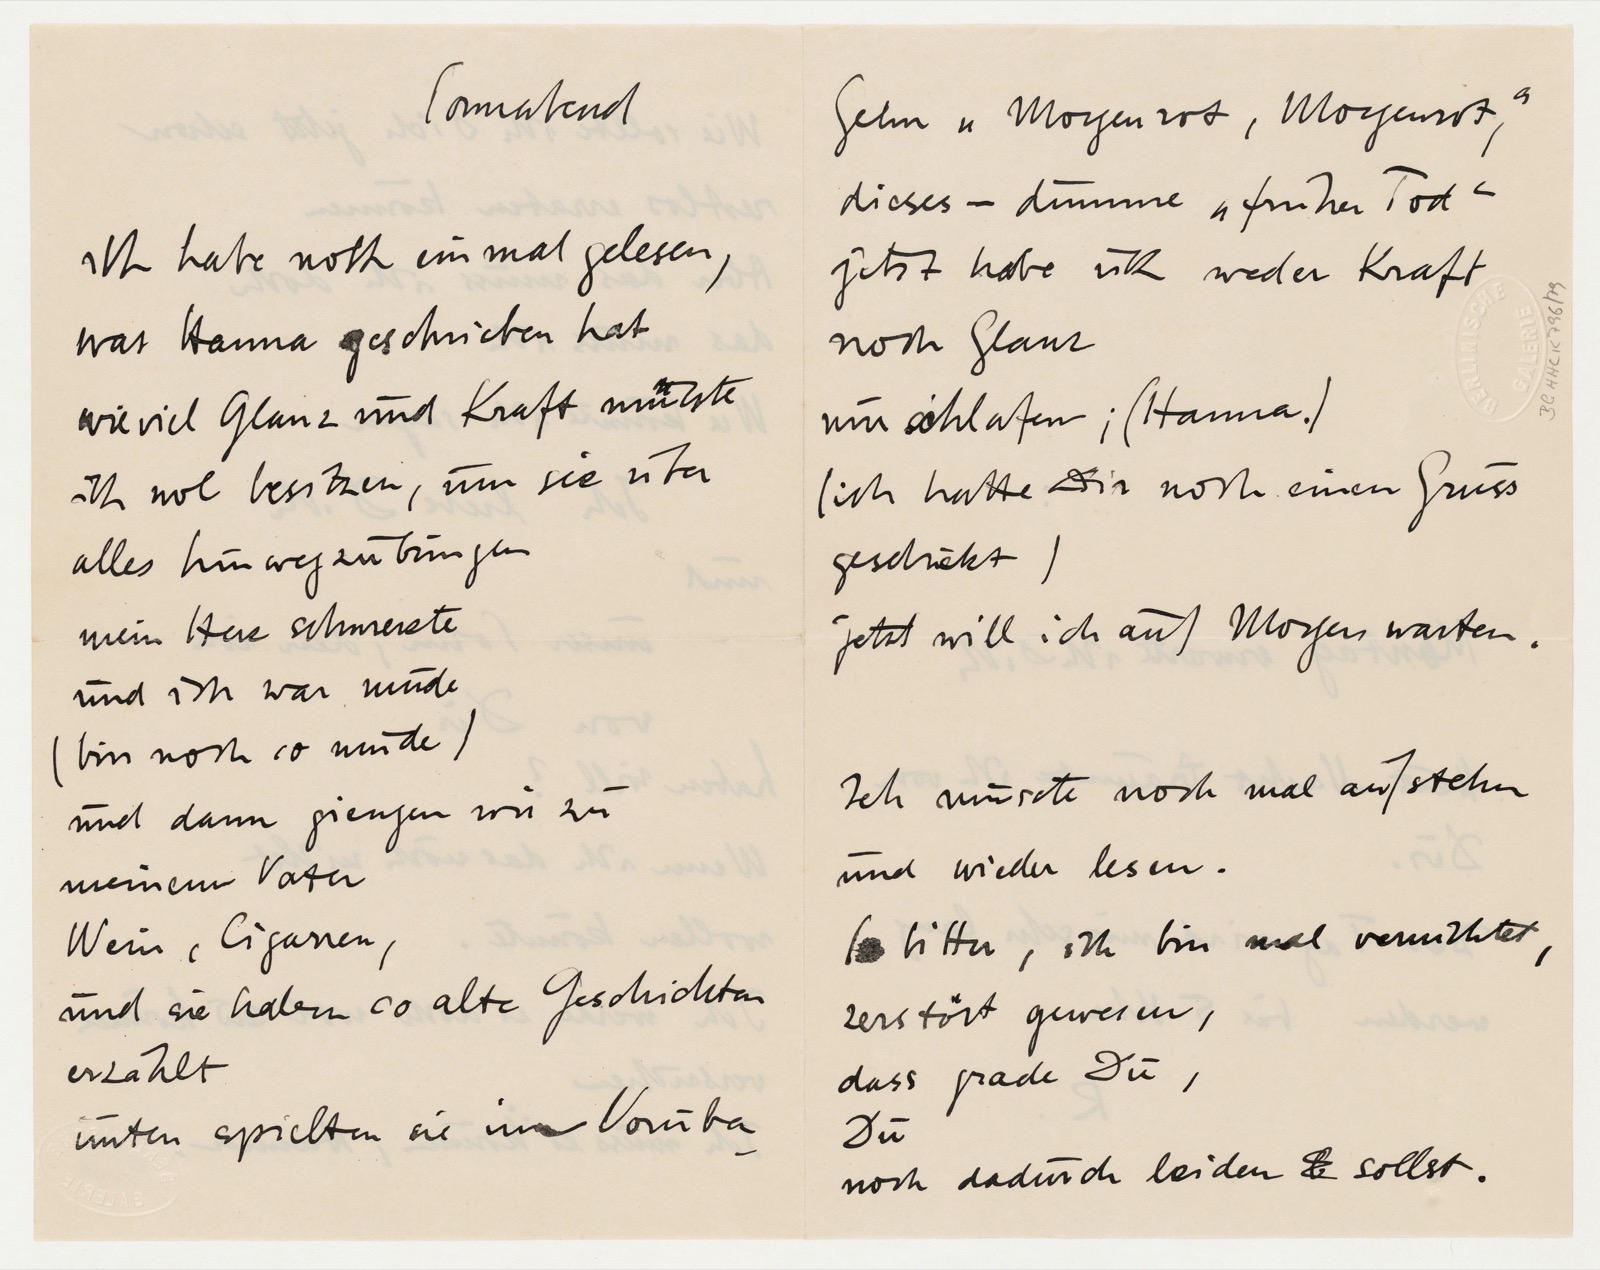 Sonnabend
ich habe noch einmal gelesen,
was Hanna geschrieben hat
wieviel Glanz und Kraft müsste
ich wol besitzen, um sie über
alles hinwegzubringen
mein Herz schmerzte
und ich war müde
(bin noch so müde)
und dann giengen wir zu
meinem Vater
Wein, Cigarren,
und sie haben so alte Geschichten
erzählt
unten spielten sie im Vorüber-
Gehn „Morgenrot, Morgenrot,“
dieses – dumme „früher Tod“
jetzt habe ich weder Kraft
noch Glanz
nur schlafen; (Hanna.)
(ich hatte Dir noch einen Gruss
geschickt)
jetzt will ich auf Morgen warten.
Ich müsste noch mal aufstehn
und wieder lesen.
So bitter, ich bin mal vernichtet,
zerstört gewesen,
dass grade Du,
Du
noch dadurch leiden sollst.
BERLINISCHE
GALERIE
BG HHC K 796/79